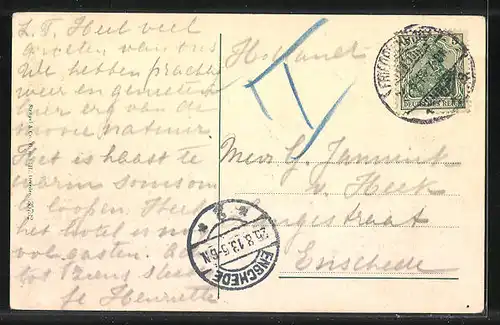 L. T. Heel veel
groeten van ons
We hebben prachtig
weer en genieten
hier erg van de
mooie natuur.
Het is haast te
warm soms om
te loopen. Heel
het hotel is
vol gasten.
tot ziens
je Henriette
Holland
T
Mevr G. Jannink
v. Heek
Langestraat
Enschede
DEUTSCHES REICH
ENSCHEDE
8.13.5-6N